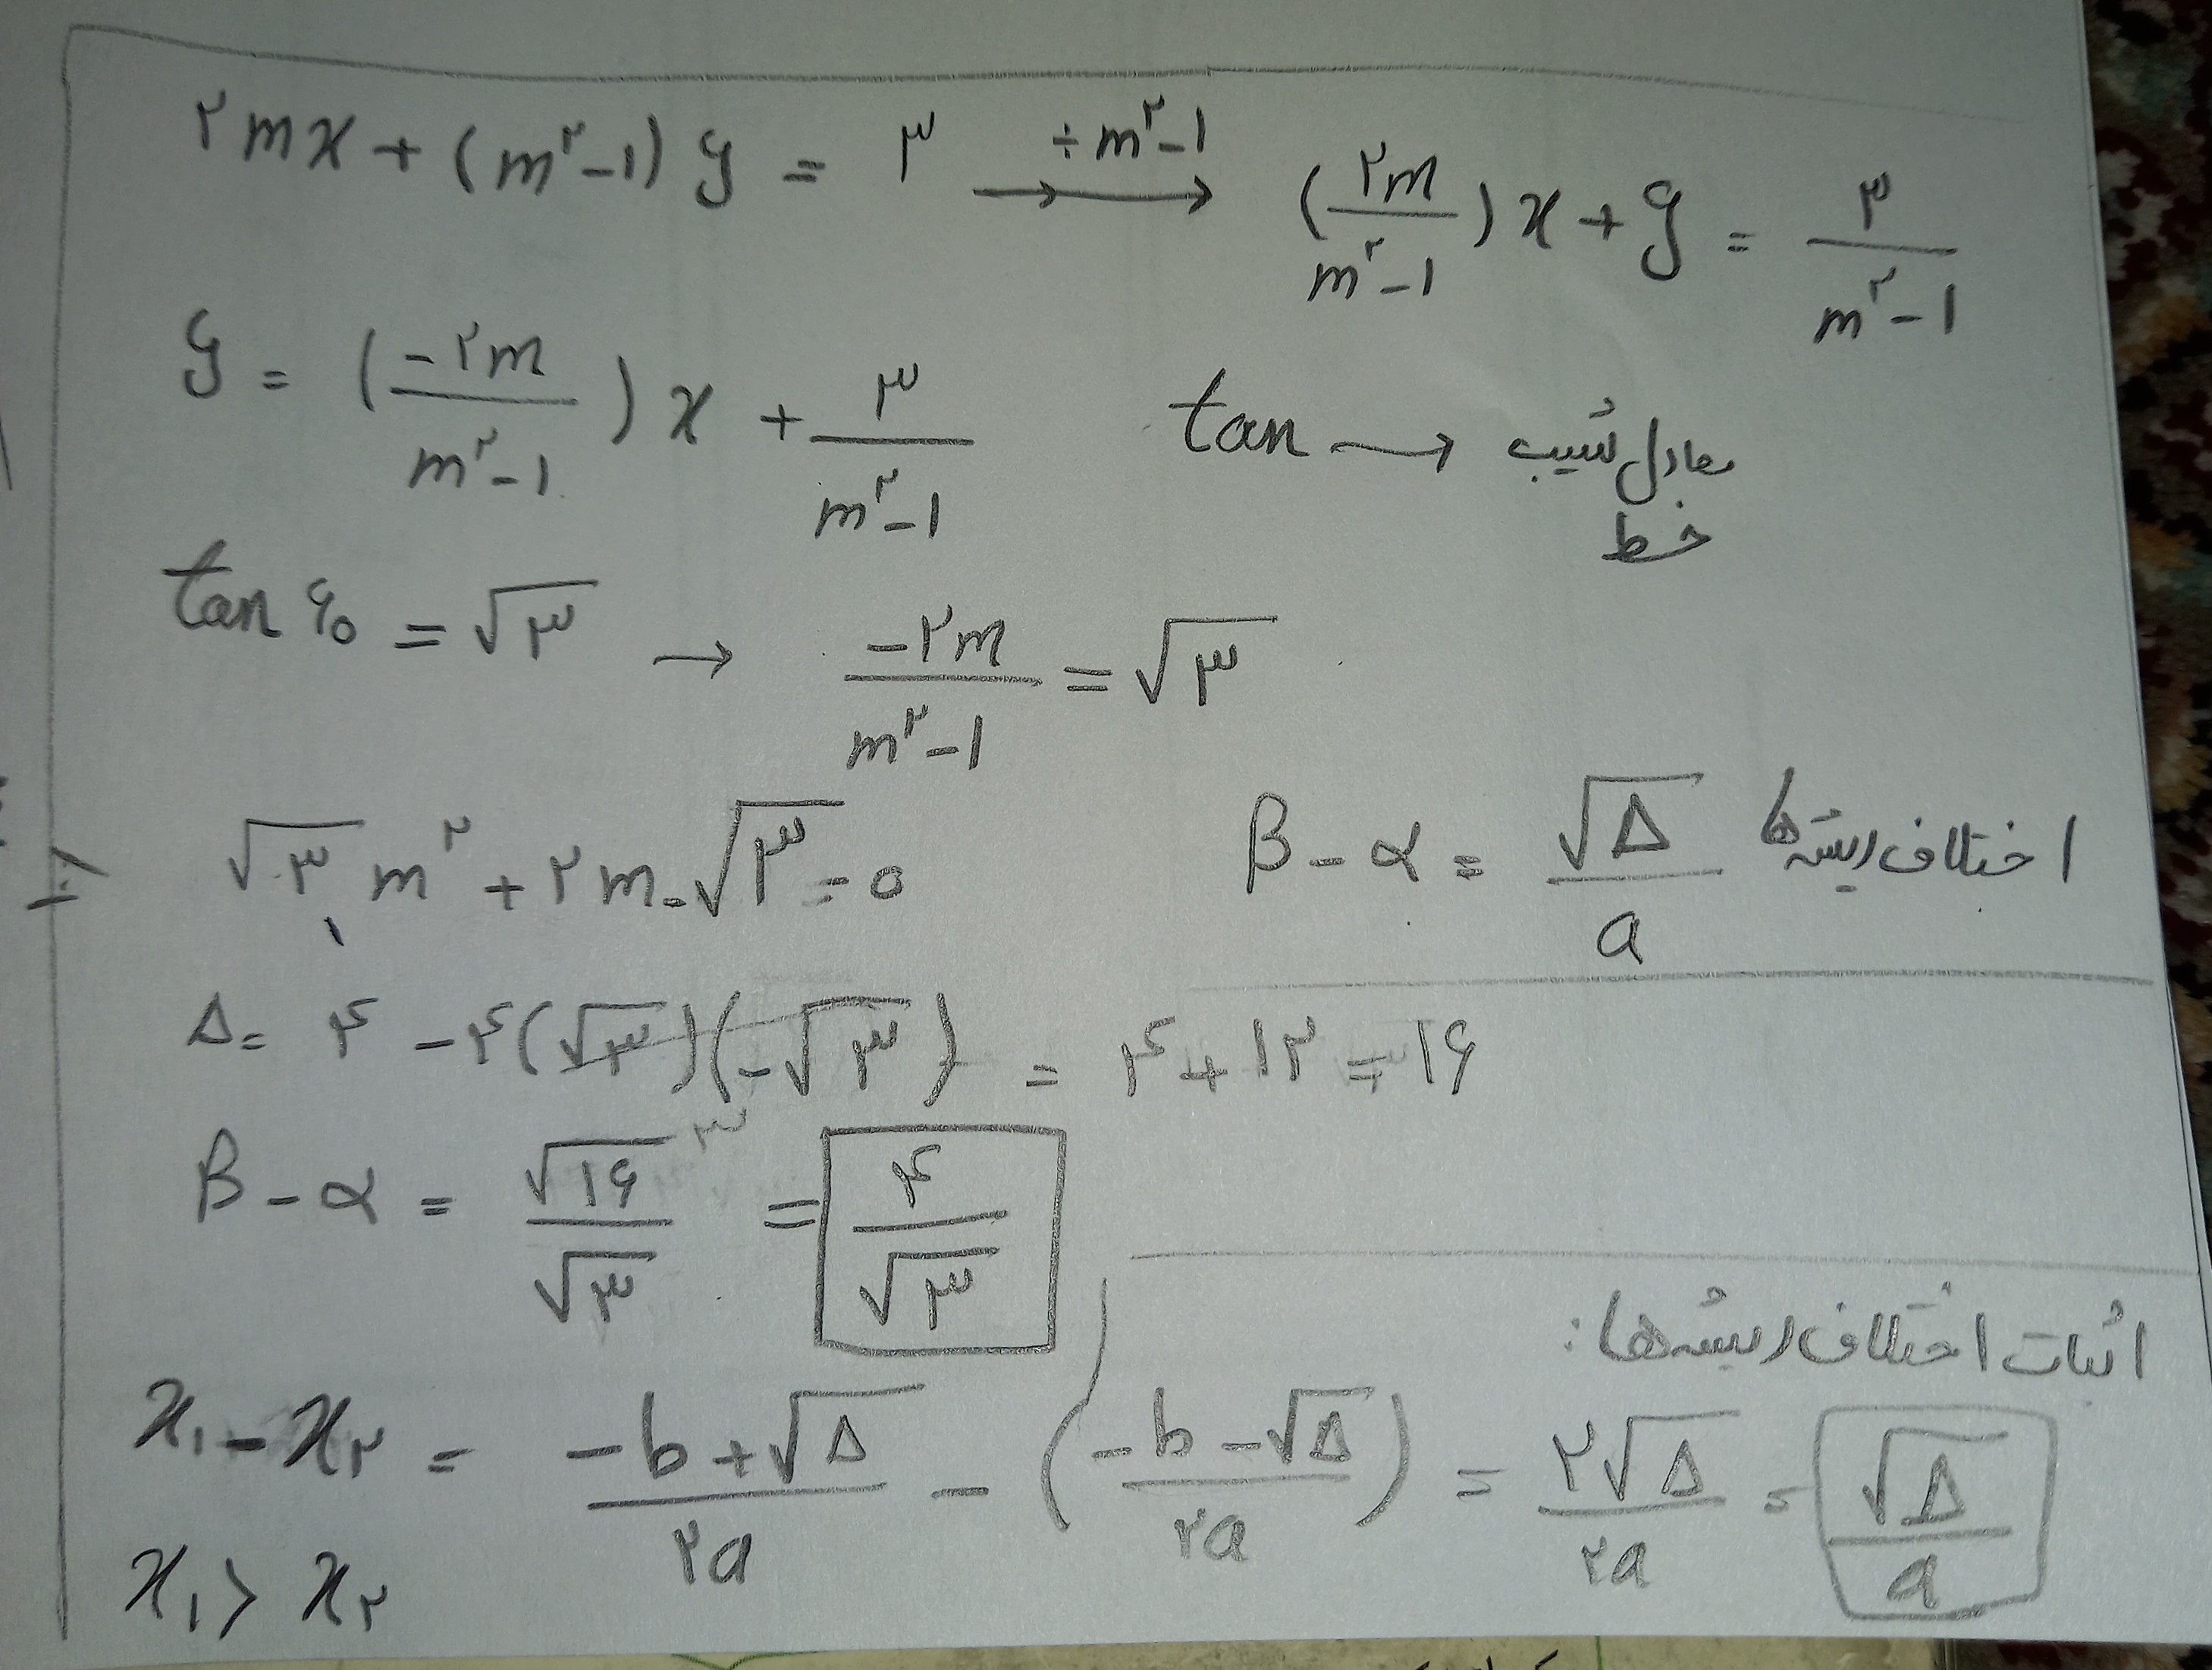 ۲mx + (m²-۱) y = ۳ →→ ÷m²-۱ (۲m/m²-۱)x + y = ۳/m²-۱
y = (-۲m/m²-۱)x + ۳/m²-۱
tan → معادل شیب
خط
tan ۶۰ = √۳ → -۲m/m²-۱ = √۳
√۳ m² + ۲m - √۳ = ۰
β - α = √Δ/a اختلاف ریشه‌ها
Δ = ۴ - ۴(√۳)(-√۳) = ۴ + ۱۲ = ۱۶
β - α = √۱۶/√۳ = ۴/√۳
اثبات اختلاف ریشه‌ها:
x₁ - x₂ = -b+√Δ/۲a - (-b-√Δ/۲a) = ۲√Δ/۲a = √Δ/a
x₁ > x₂